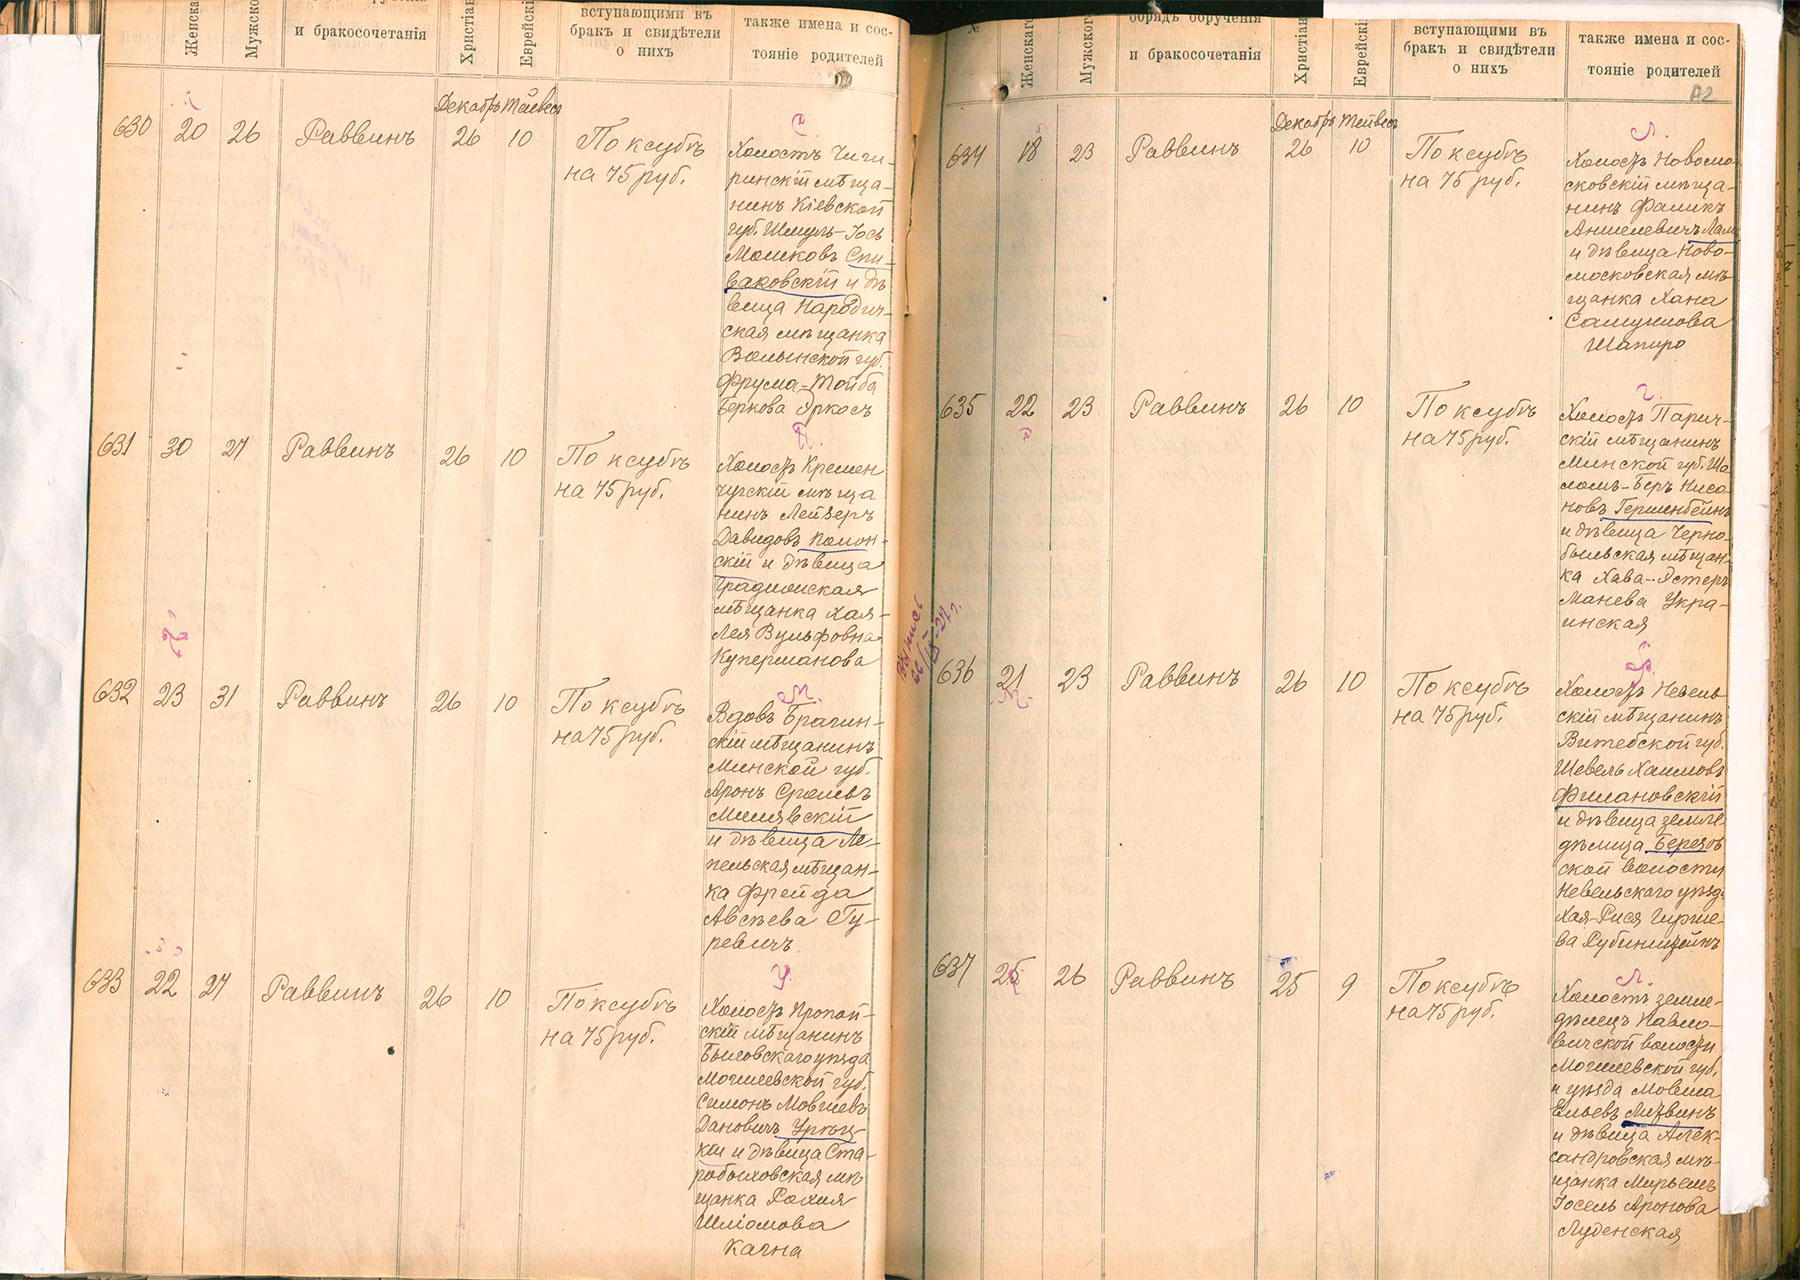 Женска
Мужско
и бракосочетанія
Христіан
Еврейскі
вступающими въ
бракъ и свидѣтели
о нихъ
также имена и сос-
тояніе родителей
Декабрь Тейвесъ
630 20 26 Раввинъ 26 10 По ксубѣ
на 75 руб.
С.
Холостъ Чиги-
ринскій мѣща-
нинъ Кіевской
губ. Шмуль-Іось
Мошковъ Спи-
ваковскій и дѣ
вица Народич-
ская мѣщанка
Волынской губ.
Фрума-Тойба
Беркова Яркосъ
631 30 27 Раввинъ 26 10 По ксубѣ
на 75 руб.
Холостъ Кремен
чугскій мѣща
нинъ Лейзеръ
Давидовъ Полон-
скій и дѣвица
Градижская
мѣщанка Хая-
Лея Вульфовна
Куперманова
632 23 31 Раввинъ 26 10 По ксубѣ
на 75 руб.
М.
Вдовъ Брагин-
скій мѣщанинъ
Минской губ.
Аронъ Сролевъ
Милявскій
и дѣвица Ле-
пельская мѣщан-
ка Фрейда
Авсѣева Гу-
ревичъ
633 22 27 Раввинъ 26 10 По ксубѣ
на 75 руб.
У.
Холостъ Пропой-
скій мѣщанинъ
Быховскаго уѣзда
Могилевской губ.
Симонъ Мовшевъ
Дановичъ Урыц-
кій и дѣвица Ста-
робыховская мѣ
щанка Рахиля
Шліомова
Кагна
Женскаго
Мужского
обрядъ обрученія
и бракосочетанія
Христіан
Еврейскі
вступающими въ
бракъ и свидѣтели
о нихъ
также имена и сос-
тояніе родителей
Декабрь Тейвесъ
634 18 23 Раввинъ 26 10 По ксубѣ
на 75 руб.
Л.
Холостъ Новомо-
сковскій мѣща-
нинъ Фаликъ
Аншелевичъ Лам
и дѣвица Ново-
московская мѣ-
щанка Хана
Самуилова
Шапиро
635 22 23 Раввинъ 26 10 По ксубѣ
на 75 руб.
Г.
Холостъ Парич-
скій мѣщанинъ
Минской губ. Шо
ломъ-Беръ Нисо-
новъ Гершенбейнъ
и дѣвица Черно-
быльская мѣщан-
ка Хава-Эстеръ
Манева Укра-
инская
Выпись
636 21 23 Раввинъ 26 10 По ксубѣ
на 75 руб.
Холостъ Невель
скій мѣщанинъ
Витебской губ.
Шевель Хаимовъ
Филановскій
и дѣвица землед
дѣлица Березов
ской волости
Невельскаго уѣзда
Хая-Рися Гирше-
ва Рубинштейнъ
637 25 26 Раввинъ 25 9 По ксубѣ
на 75 руб.
Л.
Холостъ земле-
дѣлецъ Павло-
вичской волости
Могилевской губ.
и уѣзда Мовша
Ельевъ Литвинъ
и дѣвица Алек-
сандровская мѣ-
щанка Мирьемъ
Іосель Аронова
Луденская